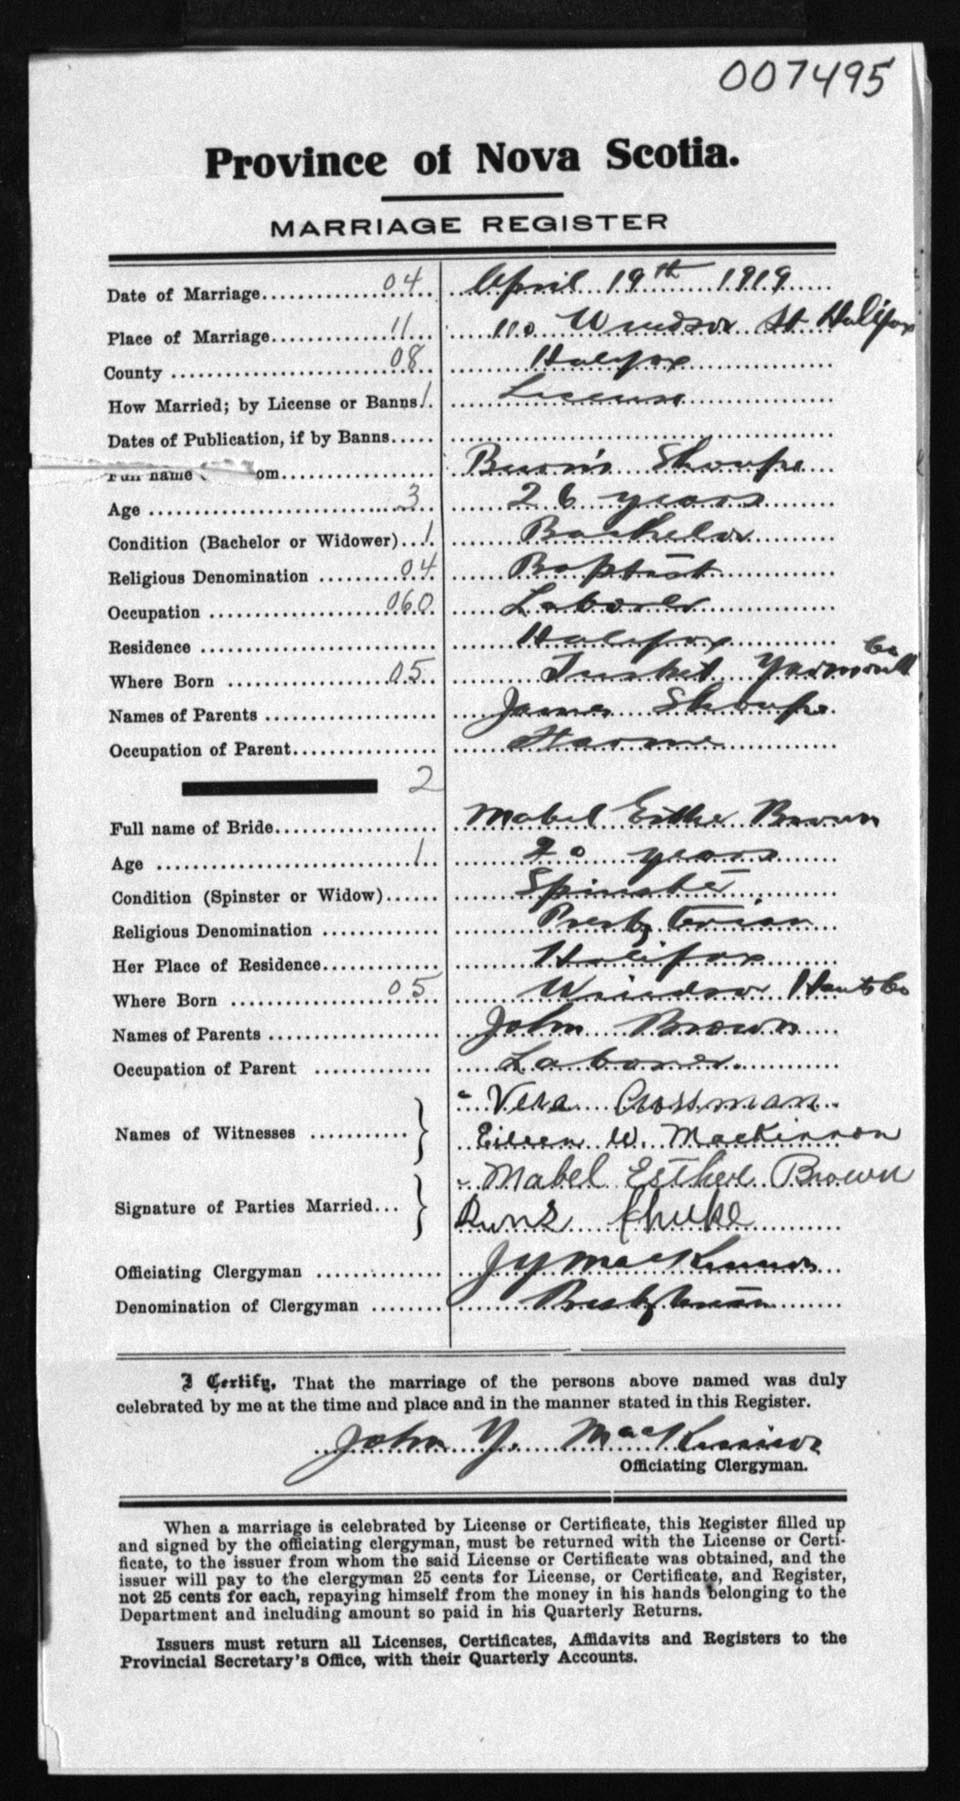 007495
Province of Nova Scotia.
MARRIAGE REGISTER
Date of Marriage 04 April 19th 1919
Place of Marriage 11 110 Windsor St Halifax
County 08 Halifax
How Married; by License or Banns 1 License
Dates of Publication, if by Banns
Full name om Shoupe
Age 3 26 years
Condition (Bachelor or Widower) 1 Bachelor
Religious Denomination 04 Baptist
Occupation 060 Laborer
Residence Halifax
Where Born 05 Tusket Yarmouth Co
Names of Parents James Shoupe
Occupation of Parent
2
Full name of Bride Mabel Esther Brown
Age 1 20 years
Condition (Spinster or Widow) Spinster
Religious Denomination Presbyterian
Her Place of Residence Halifax
Where Born 05 Windsor Hants Co
Names of Parents John Brown
Occupation of Parent Laborer
Names of Witnesses Vera Crossman
Eileen W. MacKinnon
Signature of Parties Married Mabel Esther Brown
Officiating Clergyman J Y MacKinnon
Denomination of Clergyman Presbyterian
I Certify, That the marriage of the persons above named was duly
celebrated by me at the time and place and in the manner stated in this Register.
John Y. MacKinnon
Officiating Clergyman.
When a marriage is celebrated by License or Certificate, this Register filled up
and signed by the officiating clergyman, must be returned with the License or Certi-
ficate, to the issuer from whom the said License or Certificate was obtained, and the
issuer will pay to the clergyman 25 cents for License, or Certificate, and Register,
not 25 cents for each, repaying himself from the money in his hands belonging to the
Department and including amount so paid in his Quarterly Returns.
Issuers must return all Licenses, Certificates, Affidavits and Registers to the
Provincial Secretary's Office, with their Quarterly Accounts.